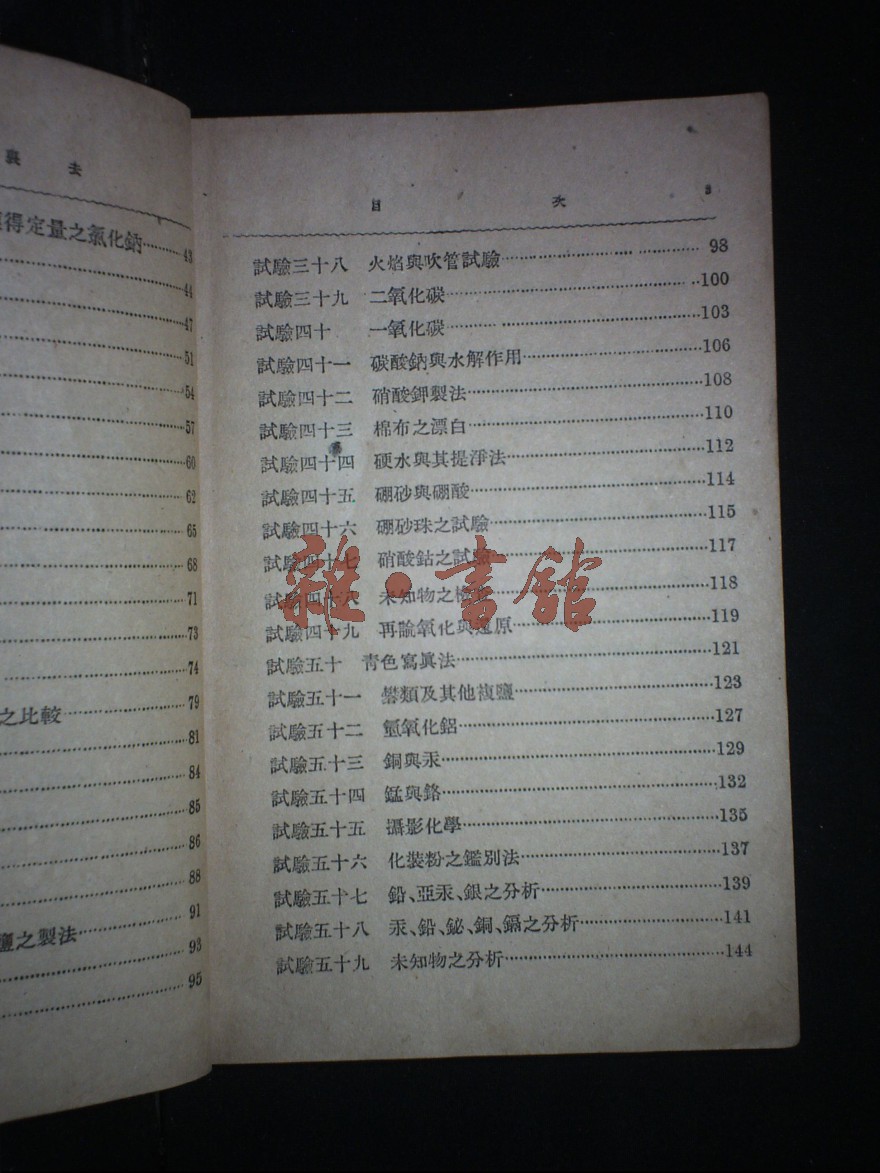 表 去
得定量之氯化鈉……43
44
47
51
54
57
60
62
65
68
71
73
74
之比較……79
81
84
85
86
88
91
鹽之製法……
93
95
目 次 3
試驗三十八 火焰與吹管試驗……98
試驗三十九 二氧化碳……100
試驗四十 一氧化碳……103
試驗四十一 碳酸鈉與水解作用……106
試驗四十二 硝酸鉀製法……108
試驗四十三 棉布之漂白……110
試驗四十四 硬水與其提淨法……112
試驗四十五 硼砂與硼酸……114
試驗四十六 硼砂珠之試驗……115
試驗四十七 硝酸鈷之試驗……117
試驗四十八 未知物之檢……118
試驗四十九 再論氧化與還原……119
試驗五十 靑色寫眞法……121
試驗五十一 礬類及其他複鹽……123
試驗五十二 氫氧化鋁……127
試驗五十三 銅與汞……129
試驗五十四 錳與鉻……132
試驗五十五 攝影化學……135
試驗五十六 化裝粉之鑑別法……137
試驗五十七 鉛、亞汞、銀之分析……139
試驗五十八 汞、鉛、鉍、銅、鎘之分析……141
試驗五十九 未知物之分析……144
雜·書館